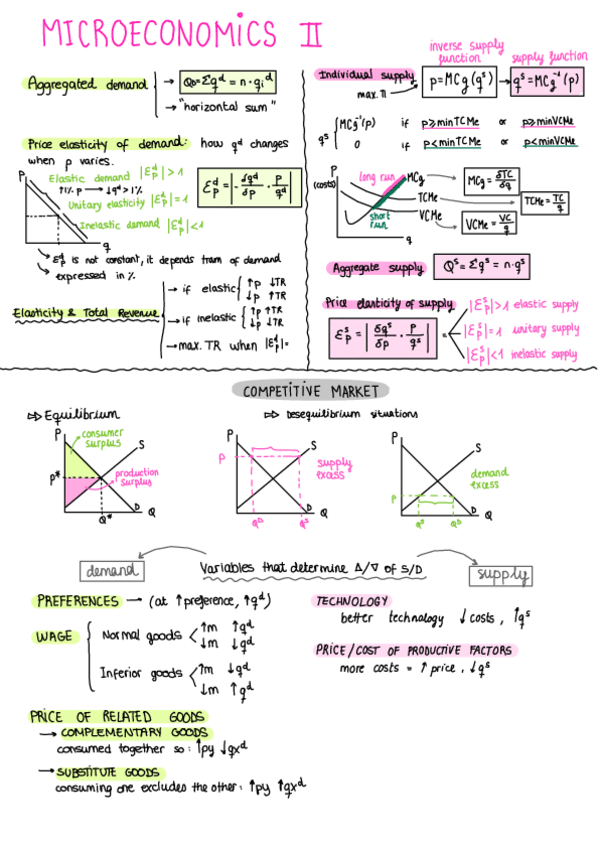 MICROECONOMICS II
Aggregated demand
→ QD = Σq^d = n · qi^d
→ "horizontal sum"
Price elasticity of demand: how q^d changes
when p varies.
P
Elastic demand |ε_p^d| > 1
↑1% p → ↓q^d > 1%
Unitary elasticity |ε_p^d| = 1
Inelastic demand |ε_p^d| < 1
q
ε_p^d = |- δq^d/δp · p/q^d|
→ ε_p^d is not constant, it depends tram of demand
→ expressed in %.
Elasticity & Total Revenue
→ if elastic { ↑p ↓TR
↓p ↑TR
→ if inelastic { ↑p ↑TR
↓p ↓TR
→ max. TR when |ε_p^d| =
inverse supply function
supply function
Individual supply
max. π
p = MCg(q^s) → q^s = MCg^-1(p)
q^s { MCg^-1(p) if p ≥ minTCMe or p ≥ minVCMe
0 if p < minTCMe or p < minVCMe
P
(costs)
long run
MCg
TCMe
VCMe
short run
q
MCg = δTC/δq
TCMe = TC/q
VCMe = VC/q
Aggregate supply
Q^s = Σq^s = n · q^s
Price elasticity of supply
ε_p^s = |δq^s/δp · p/q^s| =
|ε_p^s| > 1 elastic supply
|ε_p^s| = 1 unitary supply
|ε_p^s| < 1 inelastic supply
COMPETITIVE MARKET
⇨ Equilibrium
P
consumer surplus
S
P*
production surplus
D
Q*
Q
⇨ Desequilibrium situations
P
S
P
supply excess
Q^D
Q^S
D
Q
P
S
demand excess
P
Q^S
Q^D
D
Q
demand
Variables that determine Δ/∇ of S/D
supply
PREFERENCES → (at ↑preference, ↑q^d)
WAGE
Normal goods < ↑m ↑q^d
↓m ↓q^d
Inferior goods < ↑m ↓q^d
↓m ↑q^d
PRICE OF RELATED GOODS
→ COMPLEMENTARY GOODS
consumed together so: ↑py ↓qx^d
→ SUBSTITUTE GOODS
consuming one excludes the other: ↑py ↑qx^d
TECHNOLOGY
better technology ↓costs, ↑q^s
PRICE/COST OF PRODUCTIVE FACTORS
more costs = ↑price, ↓q^s